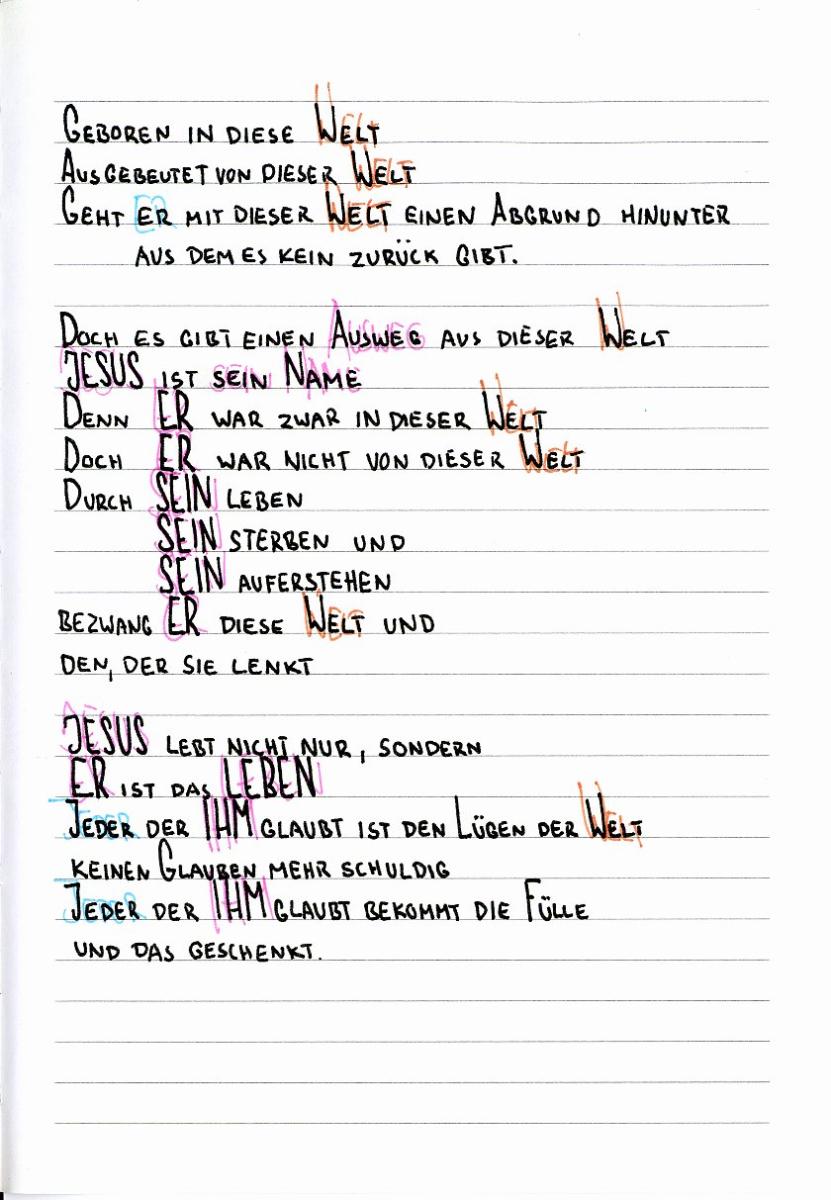 GEBOREN IN DIESE WELT
AUSGEBEUTET VON DIESER WELT
GEHT ER MIT DIESER WELT EINEN ABGRUND HINUNTER
AUS DEM ES KEIN ZURÜCK GIBT.
DOCH ES GIBT EINEN AUSWEG AUS DIESER WELT
JESUS IST SEIN NAME
DENN ER WAR ZWAR IN DIESER WELT
DOCH ER WAR NICHT VON DIESER WELT
DURCH SEIN LEBEN
SEIN STERBEN UND
SEIN AUFERSTEHEN
BEZWANG ER DIESE WELT UND
DEN, DER SIE LENKT
JESUS LEBT NICHT NUR, SONDERN
ER IST DAS LEBEN
JEDER DER IHM GLAUBT IST DEN LÜGEN DER WELT
KEINEN GLAUBEN MEHR SCHULDIG
JEDER DER IHM GLAUBT BEKOMMT DIE FÜLLE
UND DAS GESCHENKT.